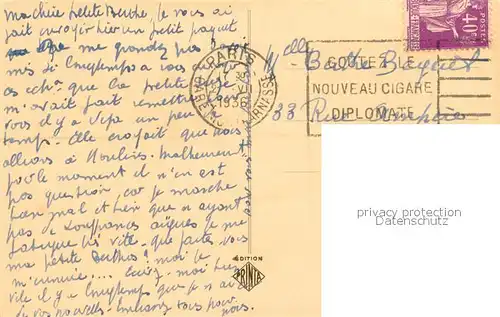 Ma chère petite Berthe, je vous ai
fait envoyer hier un petit paquet
me grondez pas
mis si longtemps à vous
que la petite
m'avait fait remettre pour
vous il y a déjà un peu de
temps. Elle croyait que nous
allions à Moulins. Malheureusement
pour le moment il n'en est
pas question, car je marche
bien mal et bien que n'ayant
pas de souffrances aiguës je me
fatigue très vite. que faites vous
ma petite Berthe? moi je
m'ennuie.... Ecrivez-moi
vite il y a longtemps que je n'ai
de vos nouvelles. Embrassez tous pour
nous.
PARIS
1936
GARE MONTPARNASSE
GOUTEZ LE
NOUVEAU CIGARE
DIPLOMATE
40c
Melle Berthe
33 Rue
privacy protection
Datenschutz
EDITION
PRINTA